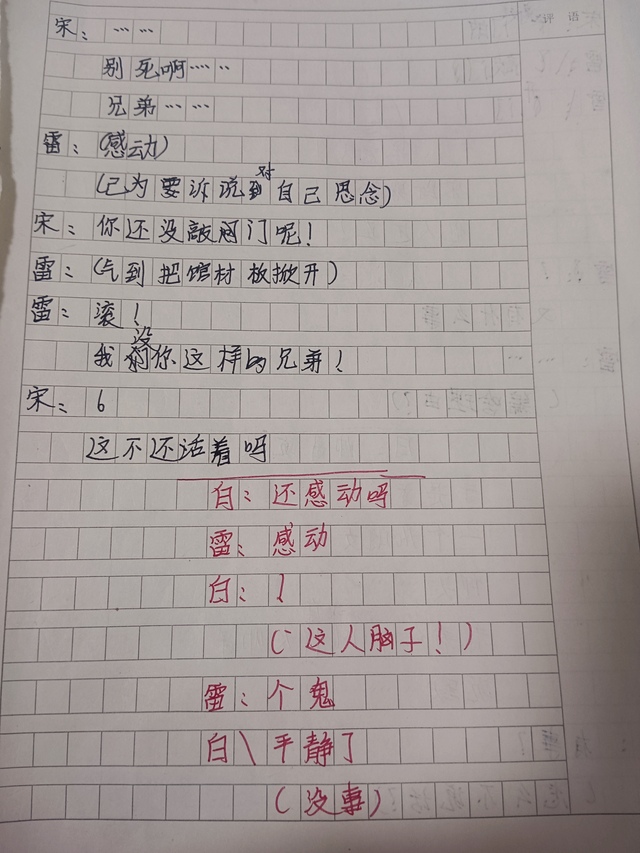 评语
宋：……
别死啊……
兄弟……
雷：(感动)
(己为要诉说对自己思念)
宋：你还没敲阎门呢！
雷：(气到把馆材板掀开)
雷：滚！
我没你这样的兄弟！
宋：6
这不还活着吗
白：还感动吗
雷：感动
白：！
(这人脑子！)
雷：个鬼
白\平静了
(没事)